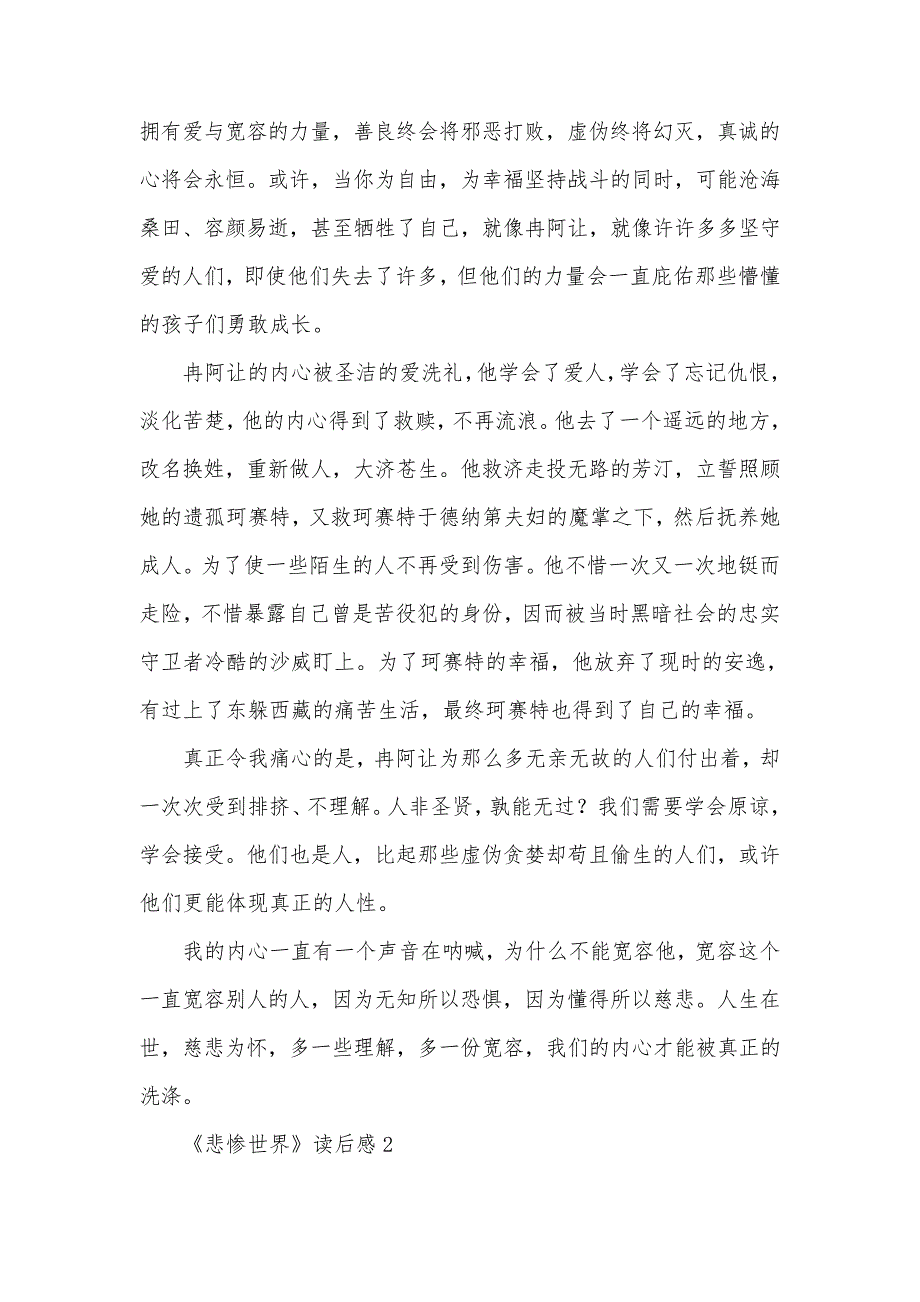 拥有爱与宽容的力量，善良终会将邪恶打败，虚伪终将幻灭，真诚的
心将会永恒。或许，当你为自由，为幸福坚持战斗的同时，可能沧海
桑田、容颜易逝，甚至牺牲了自己，就像冉阿让，就像许许多多坚守
爱的人们，即使他们失去了许多，但他们的力量会一直庇佑那些懵懂
的孩子们勇敢成长。
冉阿让的内心被圣洁的爱洗礼，他学会了爱人，学会了忘记仇恨，
淡化苦楚，他的内心得到了救赎，不再流浪。他去了一个遥远的地方，
改名换姓，重新做人，大济苍生。他救济走投无路的芳汀，立誓照顾
她的遗孤珂赛特，又救珂赛特于德纳第夫妇的魔掌之下，然后抚养她
成人。为了使一些陌生的人不再受到伤害。他不惜一次又一次地铤而
走险，不惜暴露自己曾是苦役犯的身份，因而被当时黑暗社会的忠实
守卫者冷酷的沙威盯上。为了珂赛特的幸福，他放弃了现时的安逸，
有过上了东躲西藏的痛苦生活，最终珂赛特也得到了自己的幸福。
真正令我痛心的是，冉阿让为那么多无亲无故的人们付出着，却
一次次受到排挤、不理解。人非圣贤，孰能无过？我们需要学会原谅，
学会接受。他们也是人，比起那些虚伪贪婪却苟且偷生的人们，或许
他们更能体现真正的人性。
我的内心一直有一个声音在呐喊，为什么不能宽容他，宽容这个
一直宽容别人的人，因为无知所以恐惧，因为懂得所以慈悲。人生在
世，慈悲为怀，多一些理解，多一份宽容，我们的内心才能被真正的
洗涤。
《悲惨世界》读后感2